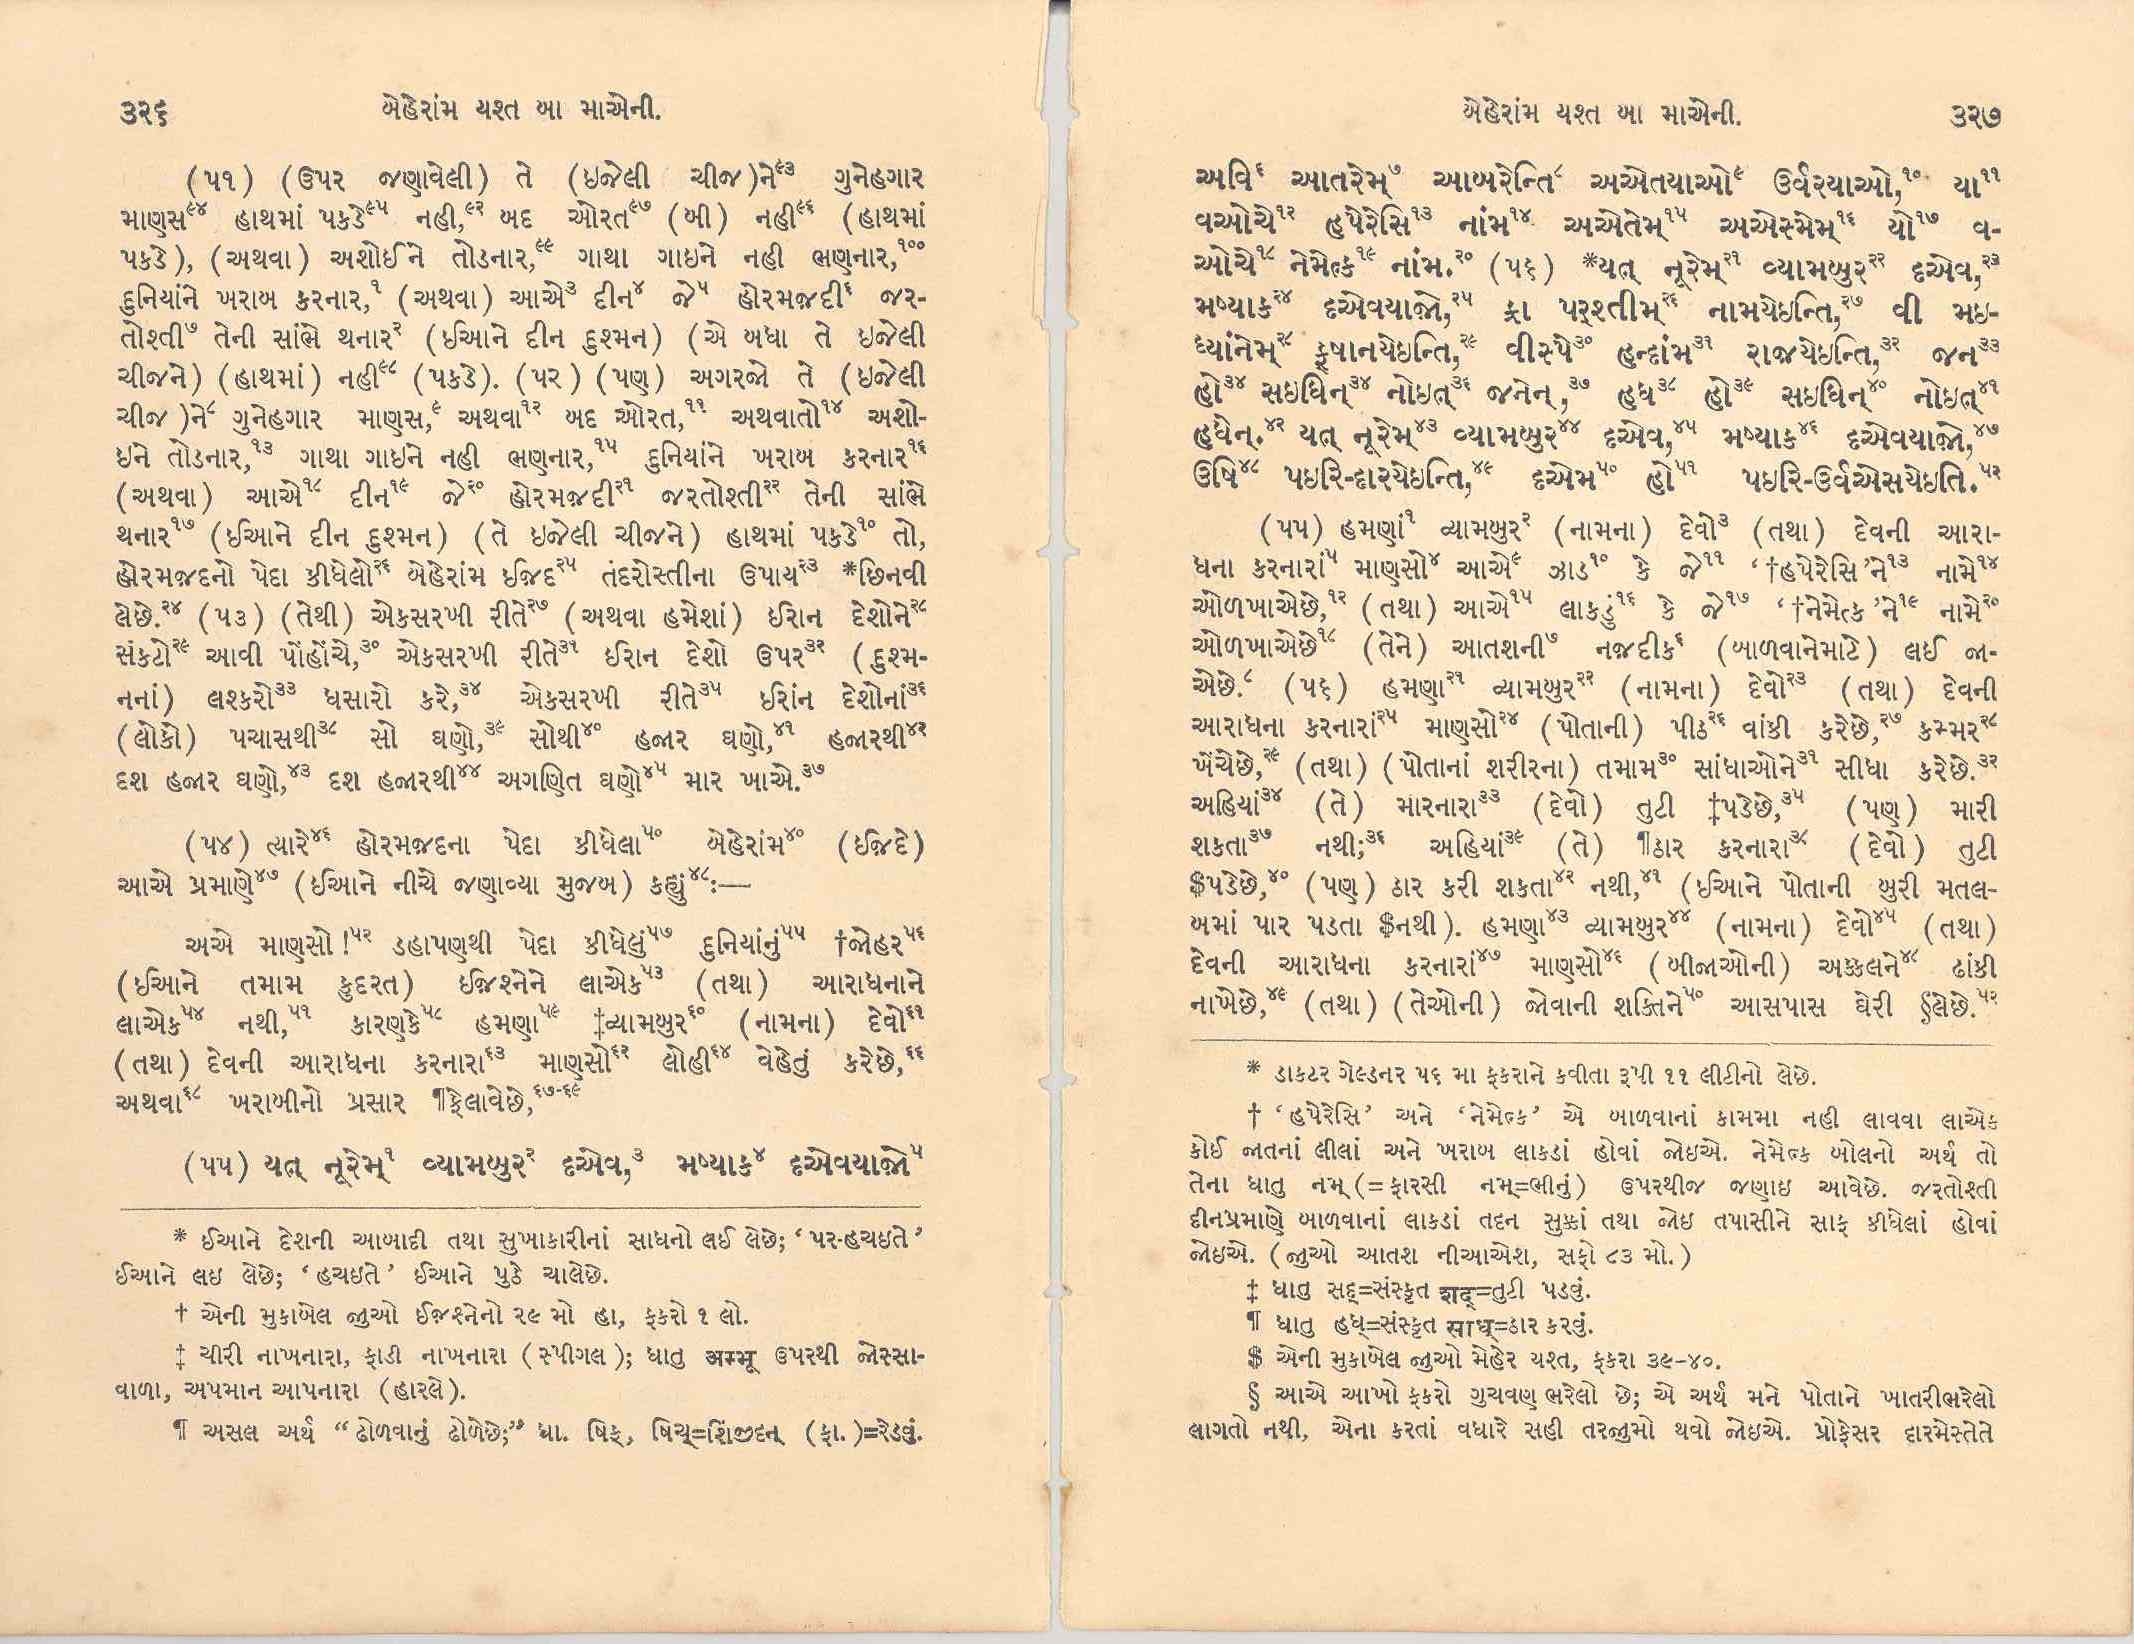 ૩૨૬ બેહેરાંમ યશ્ત બા માએની.
(૫૧) (ઉપર જણાવેલી) તે (ઇજેલી ચીજ)ને૯૩ ગુનેહગાર
માણસ૯૪ હાથમાં પકડે૯૫ નહી,૯૨ બદ ઓરત૯૭ (બી) નહી૯૬ (હાથમાં
પકડે), (અથવા) અશોઈને તોડનાર,૯૯ ગાથા ગાઇને નહી ભણનાર,૧૦૦
દુનિયાંને ખરાબ કરનાર,૧ (અથવા) આએ૩ દીન૪ જે૫ હોરમજ઼દી૬ જર-
તોશ્તી૭ તેની સાંભે થનાર૨ (ઈઆને દીન દુશ્મન) (એ બધા તે ઇજેલી
ચીજને) (હાથમાં) નહી૯૮ (પકડે). (૫૨) (પણ) અગરજો તે (ઇજેલી
ચીજ )ને૮ ગુનેહગાર માણસ,૯ અથવા૧૨ બદ ઓરત,૧૧ અથવાતો૧૪ અશો-
ઇને તોડનાર,૧૩ ગાથા ગાઇને નહી ભણનાર,૧૫ દુનિયાંને ખરાબ કરનાર૧૬
(અથવા) આએ૧૮ દીન૧૯ જે૨૦ હોરમજ઼દી૨૧ જરતોશ્તી૨૨ તેની સાંભે
થનાર૧૭ (ઈઆને દીન દુશ્મન) (તે ઇજેલી ચીજને) હાથમાં પકડે૧૦ તો,
હોરમજ઼દનો પેદા કીધેલો૨૬ બેહેરાંમ ઈજ઼દ૨૫ તંદરોસ્તીના ઉપાય૨૩ *છિનવી
લેછે.૨૪ (૫૩) (તેથી) એકસરખી રીતે૨૭ (અથવા હમેશાં) ઈરાન દેશોને૨૮
સંકટો૨૯ આવી પોંહોંચે,૩૦ એકસરખી રીતે૩૧ ઈરાન દેશો ઉપર૩૨ (દુશ્મ-
નનાં) લશ્કરો૩૩ ધસારો કરે,૩૪ એકસરખી રીતે૩૫ ઈરાંન દેશોનાં૩૬
(લોકો) પચાસથી૩૮ સો ઘણો,૩૯ સોથી૪૦ હજાર ઘણો,૪૧ હજારથી૪૨
દશ હજાર ઘણો,૪૩ દશ હજારથી૪૪ અગણિત ઘણો૪૫ માર ખાએ.૩૭
(૫૪) ત્યારે૪૬ હોરમજ઼દના પેદા કીધેલા૫૦ બેહેરાંમ૪૦ (ઇજ઼દે)
આએ પ્રમાણે૪૭ (ઈઆને નીચે જણાવ્યા મુજબ) કહ્યું૪૮:—
અએ માણસો !૫૨ ડહાપણથી પેદા કીધેલું૫૭ દુનિયાંનું૫૫ †જોહર૫૬
(ઈઆને તમામ કુદરત) ઈજ઼િશ્નેને લાએક૫૩ (તથા) આરાધનાને
લાએક૫૪ નથી,૫૧ કારણકે૫૮ હમણા૫૯ ‡વ્યામબુર૬૦ (નામના) દેવો૬૧
(તથા) દેવની આરાધના કરનારા૬૩ માણસો૬૨ લોહી૬૪ વેહેતું કરેછે,૬૬
અથવા૬૮ ખરાબીનો પ્રસાર ¶ફેલાવેછે,૬૭-૬૯
(૫૫) યત્ નૂરેમ્૧ વ્યામબુર૨ દએવ,૩ મષ્યાક૪ દએવયાજ઼ો૫
* ઈઆને દેશની આબાદી તથા સુખાકારીનાં સાધનો લઈ લેછે; ‘પર-હચઇતે’
ઈઆને લઇ લેછે; ‘હચઇતે’ ઈઆને પુઠે ચાલેછે.
† એની મુકાબેલ જુઓ ઈજ઼શ્નેનો ૨૯ મો હા, ફકરો ૧ લો.
‡ ચીરી નાખનારા, ફાડી નાખનારા (સ્પીગલ); ધાતુ अम्भू ઉપરથી જોસ્સા-
વાળા, અપમાન આપનારા (હારલે).
¶ અસલ અર્થ “ઢોળવાનું ઢોળેછે;” ધા. ષિક્, ષિચ્=શિંજીદન્ (ફા.)=રેડવું.
બેહેરાંમ યશ્ત બા માએની. ૩૨૭
અવિ૬ આતરેમ્૭ આબરેન્તિ૮ અએતયાઓ૯ ઉર્વરયાઓ,૧૦ યા૧૧
વઓચે૧૨ હપેરેસિ૧૩ નાંમ૧૪ અએતેમ્૧૫ અએસ્મેમ્૧૬ યો૧૭ વ-
ઓચે૧૮ નેમેત્ક૧૯ નાંમ.૨૦ (૫૬) *યત્ નૂરેમ્૨૧ વ્યામબુર૨૨ દએવ,૨૩
મષ્યાક૨૪ દએવયાજ઼ો,૨૫ ફ્રા પર્શ્તીમ્૨૬ નામયેઇન્તિ,૨૭ વી મઇ-
ધ્યાંનેમ્૨૮ ફ્ષાનયેઇન્તિ,૨૯ વીસ્પે૩૦ હન્દાંમ૩૧ રાજ઼યેઇન્તિ,૩૨ જન૩૩
હો૩૪ સઇધિન્૩૪ નોઇત્૩૬ જનેન્,૩૭ હધ૩૮ હો૩૯ સઇધિન્૪૦ નોઇત્૪૧
હધેન્.૪૨ યત્ નૂરેમ્૪૩ વ્યામબુર૪૪ દએવ,૪૫ મષ્યાક૪૬ દએવયાજ઼ો,૪૭
ઉષિ૪૮ પઇરિ-દારયેઇન્તિ,૪૯ દએમ૫૦ હો૫૧ પઇરિ-ઉર્વએસયેઇતિ.૫૨
(૫૫) હમણાં૧ વ્યામબુર૨ (નામના) દેવો૩ (તથા) દેવની આરા-
ધના કરનારાં૫ માણસો૪ આએ૯ ઝાડ૧૦ કે જે૧૧ ‘†હપેરેસિ’ને૧૩ નામે૧૪
ઓળખાએછે,૧૨ (તથા) આએ૧૫ લાકડું૧૬ કે જે૧૭ ‘†નેમેત્ક’ને૧૯ નામે૨૦
ઓળખાએછે૧૮ (તેને) આતશની૭ નજ઼દીક૬ (બાળવાનેમાટે) લઈ જા-
એછે.૮ (૫૬) હમણા૨૧ વ્યામબુર૨૨ (નામના) દેવો૨૩ (તથા) દેવની
આરાધના કરનારાં૨૫ માણસો૨૪ (પોતાની) પીઠ૨૬ વાંકી કરેછે,૨૭ કમ્મર૨૮
ખેંચેછે,૨૯ (તથા) (પોતાનાં શરીરના) તમામ૩૦ સાંધાઓને૩૧ સીધા કરેછે.૩૨
અહિયાં૩૪ (તે) મારનારા૩૩ (દેવો) તુટી ‡પડેછે,૩૫ (પણ) મારી
શકતા૩૭ નથી;૩૬ અહિયાં૩૯ (તે) ¶ઠાર કરનારા૩૮ (દેવો) તુટી
$પડેછે,૪૦ (પણ) ઠાર કરી શકતા૪૨ નથી,૪૧ (ઈઆને પોતાની બુરી મતલ-
બમાં પાર પડતા $નથી). હમણા૪૩ વ્યામબુર૪૪ (નામના) દેવો૪૫ (તથા)
દેવની આરાધના કરનારાં૪૭ માણસો૪૬ (બીજાઓની) અક્કલને૪૮ ઢાંકી
નાખેછે,૪૯ (તથા) (તેઓની) જોવાની શક્તિને૫૦ આસપાસ ઘેરી §લેછે.૫૨
* ડાકટર ગેલ્ડનર ૫૬ મા ફકરાને કવીતા રૂપી ૧૧ લીટીનો લેછે.
† ‘હપેરેસિ’ અને ‘નેમેત્ક’ એ બાળવાનાં કામમા નહી લાવવા લાએક
કોઈ જાતનાં લીલાં અને ખરાબ લાકડાં હોવાં જોઇએ. નેમેત્ક બોલનો અર્થ તો
તેના ધાતુ નમ્ (=ફારસી નમ્=ભીનું) ઉપરથીજ જણાઇ આવેછે. જરતોશ્તી
દીનપ્રમાણે બાળવાનાં લાકડાં તદન સુક્કાં તથા જોઇ તપાસીને સાફ કીધેલાં હોવાં
જોઇએ. (જુઓ આતશ નીઆએશ, સફો ૮૩ મો.)
‡ ધાતુ સદ્=સંસ્કૃત शद्=તુટી પડવું.
¶ ધાતુ હધ્=સંસ્કૃત साध्=ઠાર કરવું.
$ એની મુકાબેલ જુઓ મેહેર યશ્ત, ફકરા ૩૯-૪૦.
§ આએ આખો ફકરો ગુચવણ ભરેલો છે; એ અર્થ મને પોતાને ખાતરીભરેલો
લાગતો નથી, એના કરતાં વધારે સહી તરજુમો થવો જોઇએ. પ્રોફેસર દારમેસ્તેતે